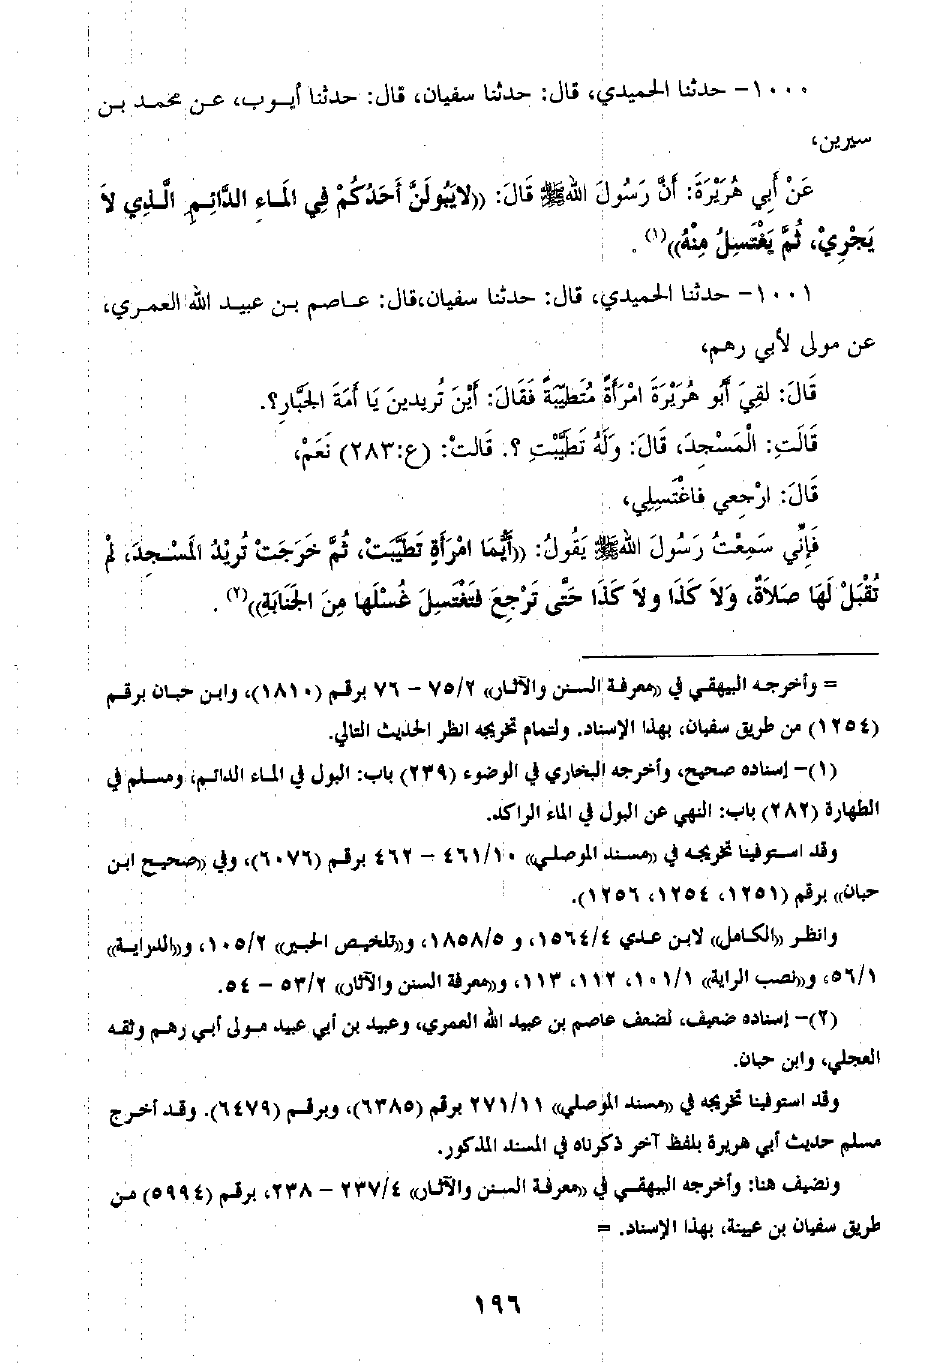 ١٠٠٠- حدثنا الحميدي، قال: حدثنا سفيان، قال: حدثنا أيوب، عن محمد بن
سيرين،
عَنْ أَبِي هُرَيْرَةَ: أَنَّ رَسُولَ اللهِ ﷺ قَالَ: ((لايَبُولَنَّ أَحَدُكُمْ فِي الْمَاءِ الدَّائِمِ الَّذِي لاَ
يَجْرِيْ، ثُمَّ يَغْتَسِلُ مِنْهُ))(١).
١٠٠١- حدثنا الحميدي، قال: حدثنا سفيان،قال: عاصم بن عبيد الله العمري،
عن مولى لأبي رهم،
قَالَ: لَقِيَ أَبُو هُرَيْرَةَ امْرَأَةً مُتَطَيِّبَةً فَقَالَ: أَيْنَ تُرِيدينَ يَا أَمَةَ الْجَبَّارِ؟.
قَالَتِ: الْمَسْجِدَ، قَالَ: وَلَهُ تَطَيَّبْتِ ؟. قَالتْ: (ع:٢٨٣) نَعَمْ،
قَالَ: ارْجعي فاغْتَسِلِي،
فَإِنِّي سَمِعْتُ رَسُولَ اللهِ ﷺ يَقُولُ: ((أَيُّمَا امْرَأَةٍ تَطَيَّبَتْ، ثُمَّ خَرَجَتْ تُرِيْدُ الْمَسْجِدَ، لَمْ
تُقْبَلْ لَهَا صَلاَةٌ، وَلاَ كَذَا ولاَ كَذَا حَتَّى تَرْجِعَ فَتَغْتَسِلَ غُسْلَها مِنَ الْجَنَابَةِ))(٢).
= وأخرجه البيهقي في ((معرفة السنن والآثار)) ٧٥/٢ – ٧٦ برقم (١٨١٠)، وابن حبان برقم
(١٢٥٤) من طريق سفيان، بهذا الإسناد. ولتمام تخريجه انظر الحديث التالي.
(١)- إسناده صحيح، وأخرجه البخاري في الوضوء (٢٣٩) باب: البول في الماء الدائم، ومسلم في
الطهارة (٢٨٢) باب: النهي عن البول في الماء الراكد.
وقد استوفينا تخريجه في ((مسند الموصلي)) ٤٦١/١٠ – ٤٦٢ برقم (٦٠٧٦)، وفي ((صحيح ابن
حبان)) برقم (١٢٥١، ١٢٥٤، ١٢٥٦).
وانظر ((الكامل)) لابن عدي ١٥٦٤/٤، و ١٨٥٨/٥، و((تلخيص الحبير)) ١٠٥/٢، و((الدراية))
٥٦/١، و((نصب الراية)) ١٠١/١، ١١٢، ١١٣، و((معرفة السنن والآثار)) ٥٣/٢ – ٥٤.
(٢)- إسناده ضعيف، لضعف عاصم بن عبيد الله العمري، وعبيد بن أبي عبيد مولى أبي رهم وثقه
العجلي، وابن حبان.
وقد استوفينا تخريجه في ((مسند الموصلي)) ٢٧١/١١ برقم (٦٣٨٥)، وبرقم (٦٤٧٩). وقد أخرج
مسلم حديث أبي هريرة بلفظ آخر ذكرناه في المسند المذكور.
ونضيف هنا: وأخرجه البيهقي في ((معرفة السنن والآثار)) ٢٣٧/٤ – ٢٣٨، برقم (٥٩٩٤) من
طريق سفيان بن عيينة، بهذا الإسناد. =
١٩٦